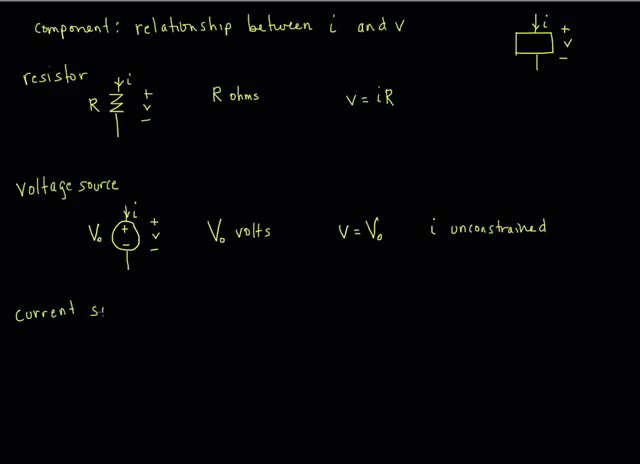 component: relationship between i and v
i + v −
resistor
R i + v − R ohms v = iR
voltage source
V₀ + − i + v − V₀ volts v = V₀ i unconstrained
current s